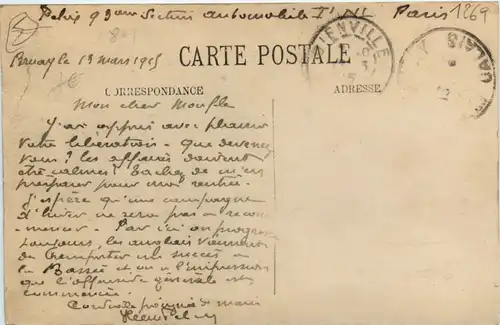 Section automobile
Paris 1869
Bruay le 13 mars 1915
CARTE POSTALE
CORRESPONDANCE
ADRESSE
IENVILLE
CALAIS
Mon cher
J'ai appris avec plaisir
votre libération. Que devenez
vous? les affaires doivent
être calmes! Tachez de m'en
préparer pour ma rentrée.
J'espère qu'une campagne
d'hiver ne sera pas à recom-
mencer. Par ici on progresse
toujours, les anglais viennent
de remporter un succès à
la Bassée et on a l'impression
que l'offensive générale est
commencée.
Cordiale poignée de main